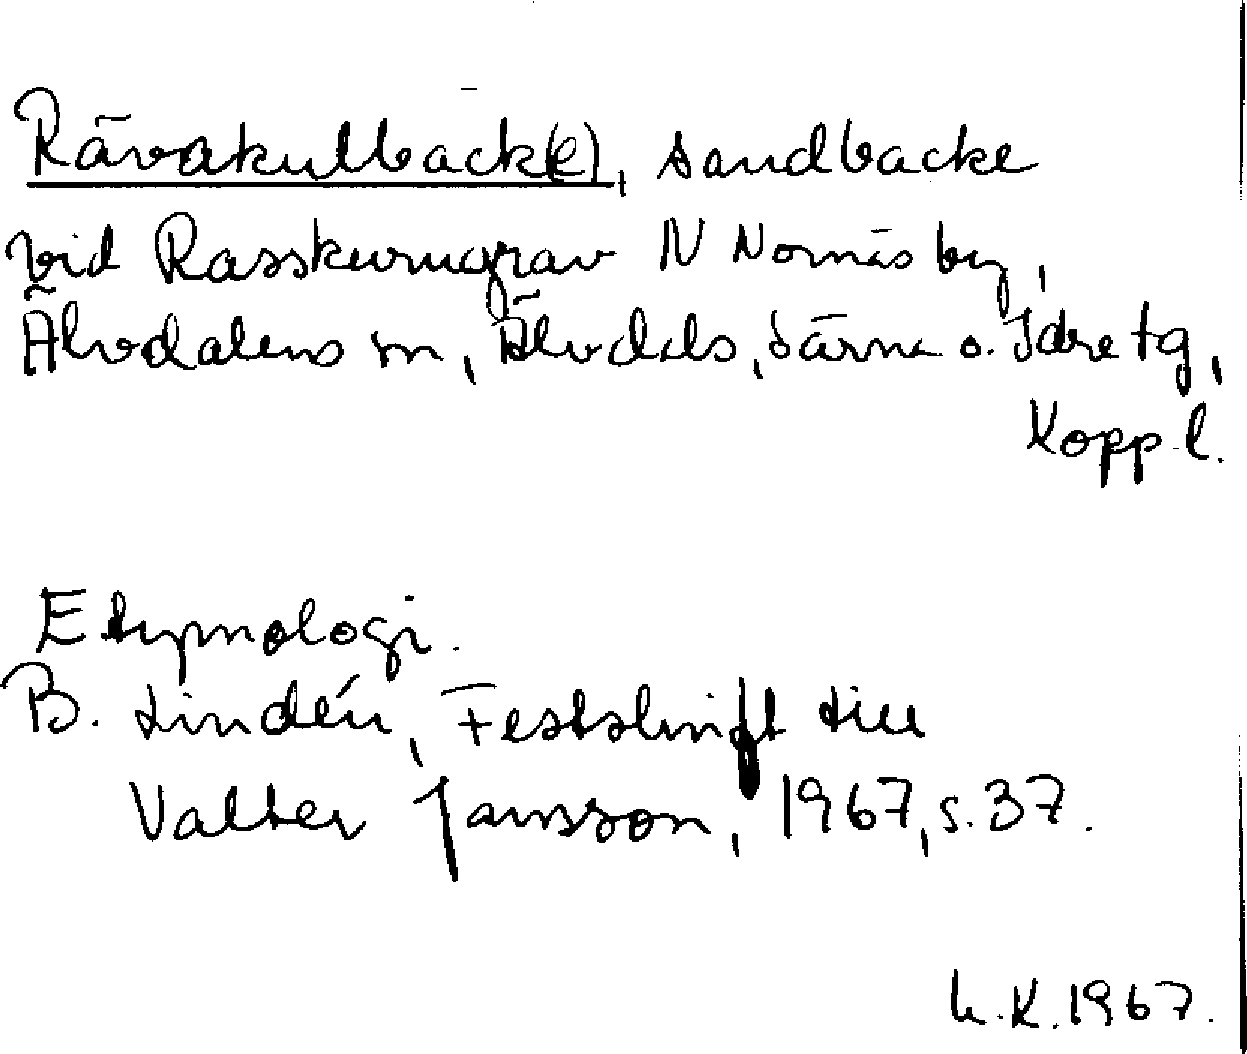 Rävakullback(e), sandbacke
vid Rasskurugrav N Nornäs by,
Älvdalens sn, Älvdals, Särna o. Idre tg,
Kopp. l.
Etymologi.
B. Lindén, Festskrift till
Valter Jansson, 1967, s. 37.
L.K. 1967.